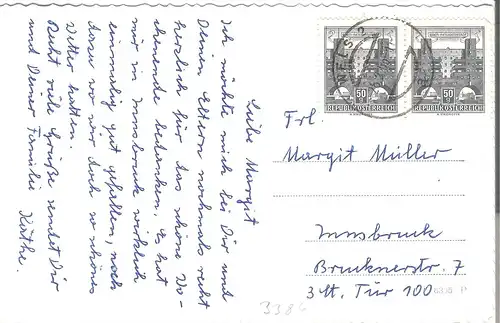 Liebe Margit
Ich möchte mich bei Dir und
Deinen Eltern nochmals recht
herzlich für das schöne Wo-
chenende bedanken, es hat
mir in Innsbruck wirklich
einmalig gut gefallen, noch
dazu wo wir doch so schönes
Wetter hatten.
Recht viele Grüße sendet Dir
und Deiner Familie Käthe.
WELS 2
50 g
REPUBLIK ÖSTERREICH
50 g
REPUBLIK ÖSTERREICH
Frl.
Margit Müller
Innsbruck
Brucknerstr. 7
3 St. Tür 100
P
338